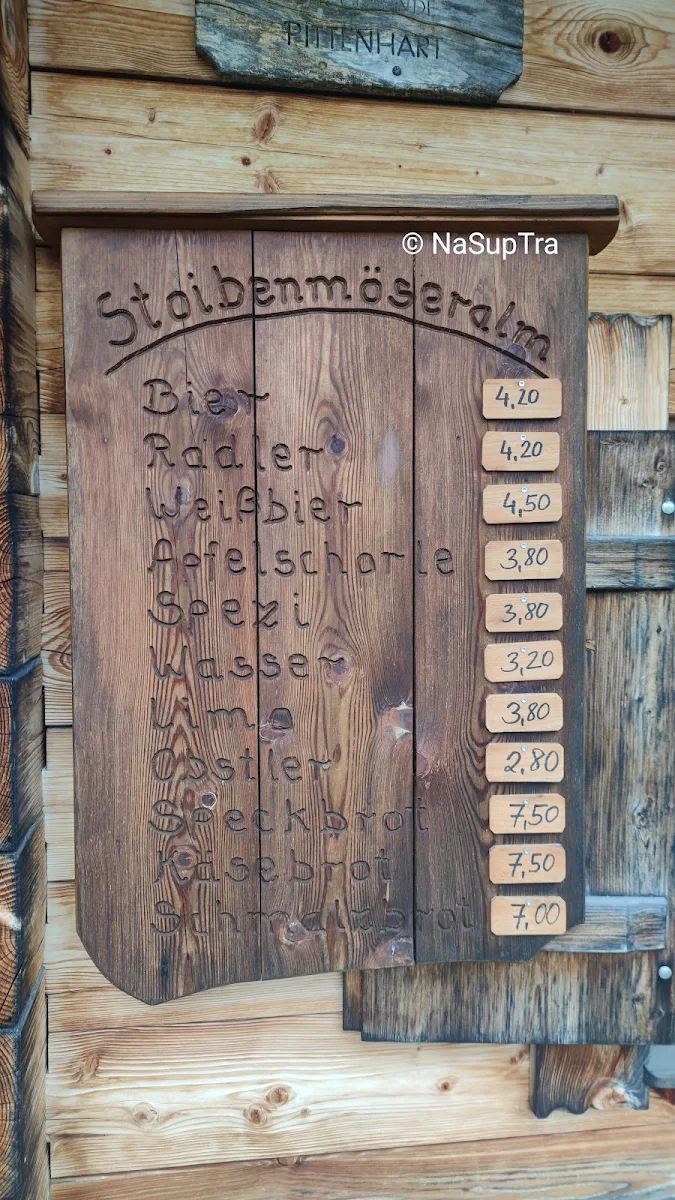 PITTENHART
© NaSupTra
Stoibenmöseralm
Bier 4,20
Radler 4,20
Weißbier 4,50
Apfelschorle 3,80
Spezi 3,80
Wasser 3,20
Limo 3,80
Obstler 2,80
Speckbrot 7,50
Käsebrot 7,50
Schmalzbrot 7,00